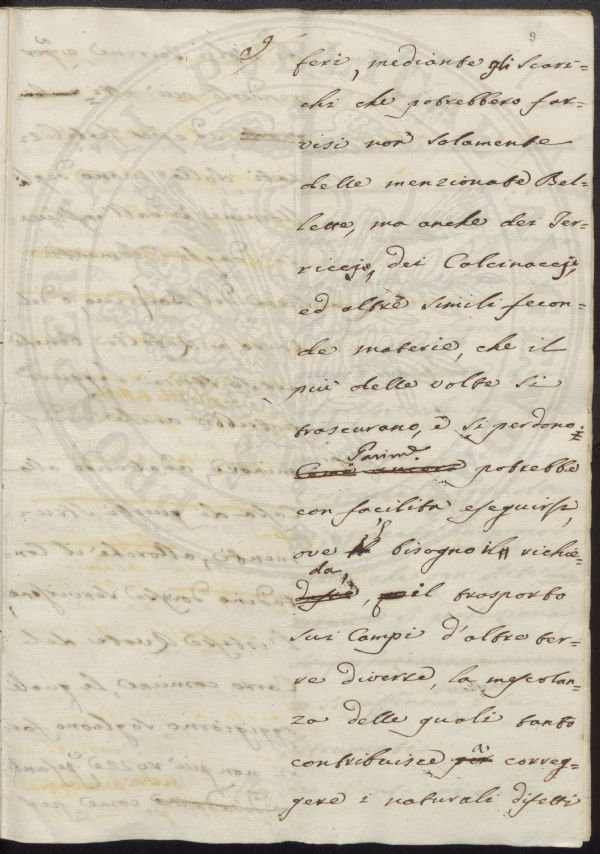 9
9
feri, mediante gli Scari=
chi che potrebbero far=
visi non solamente
delle menzionate Bel=
lette, ma anche dei Ter=
riccj, dei Calcinaccj,
ed altre simili fecon=
de materie, che il
più delle volte si
trascurano, e si perdono:
Parim.e
Come ancora potrebbe
con facilità eseguirsi,
ove bisogno il richie=
da
desse, il trasporto
sui Campi d'altre ter=
re diverse, la mescolan=
za delle quali tanto
a
contribuisce per correg=
gere i naturali difetti